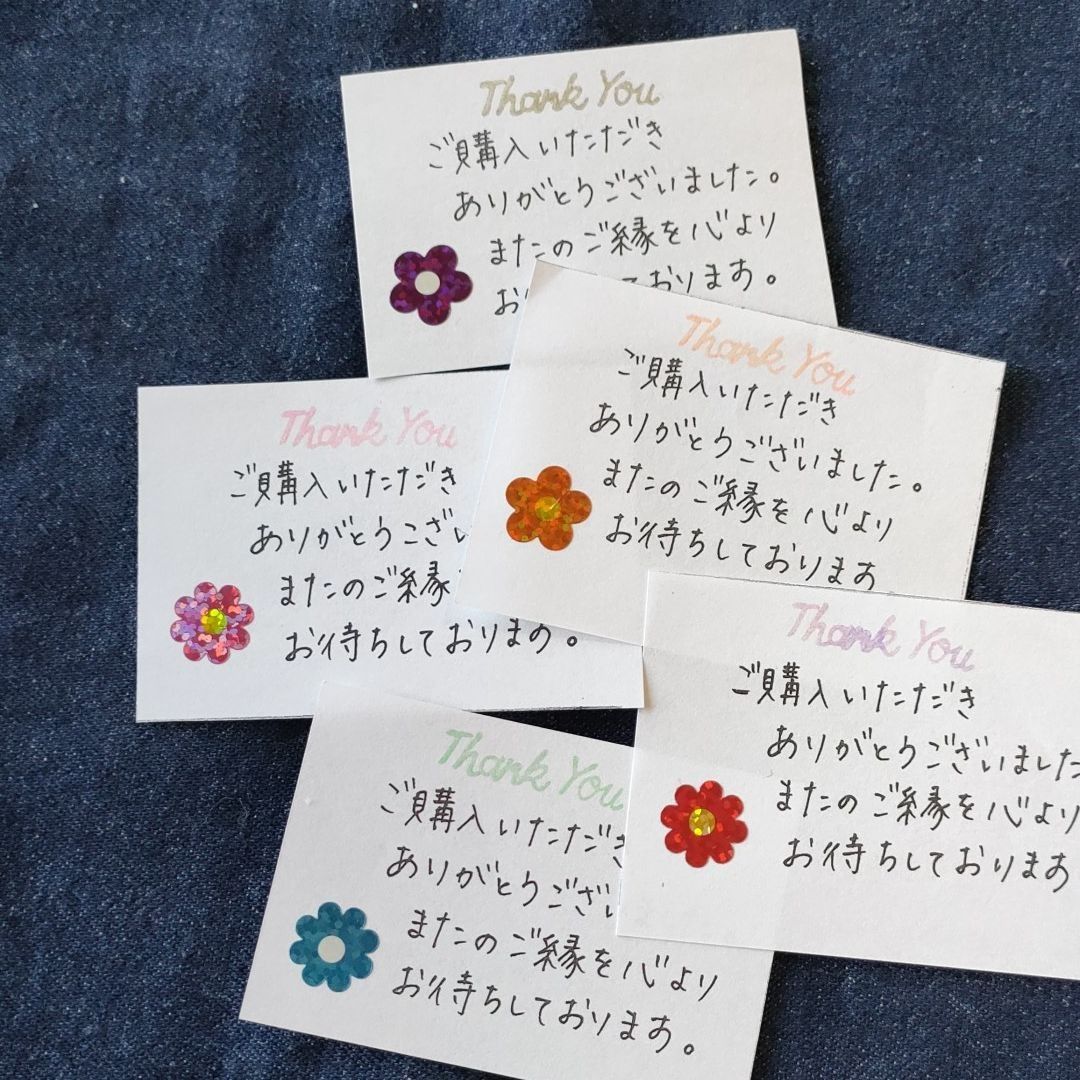 Thank You
ご購入いただき
ありがとうございました。
またのご縁を心より
お ております。
Thank You
ご購入いただき
ありがとうございました。
またのご縁を心より
お待ちしております
Thank You
ご購入いただき
ありがとうござい
またのご縁
お待ちしております。
Thank You
ご購入いただき
ありがとうございました
またのご縁を心より
お待ちしております
Thank You
ご購入いただき
ありがとうござい
またのご縁を心より
お待ちしております。